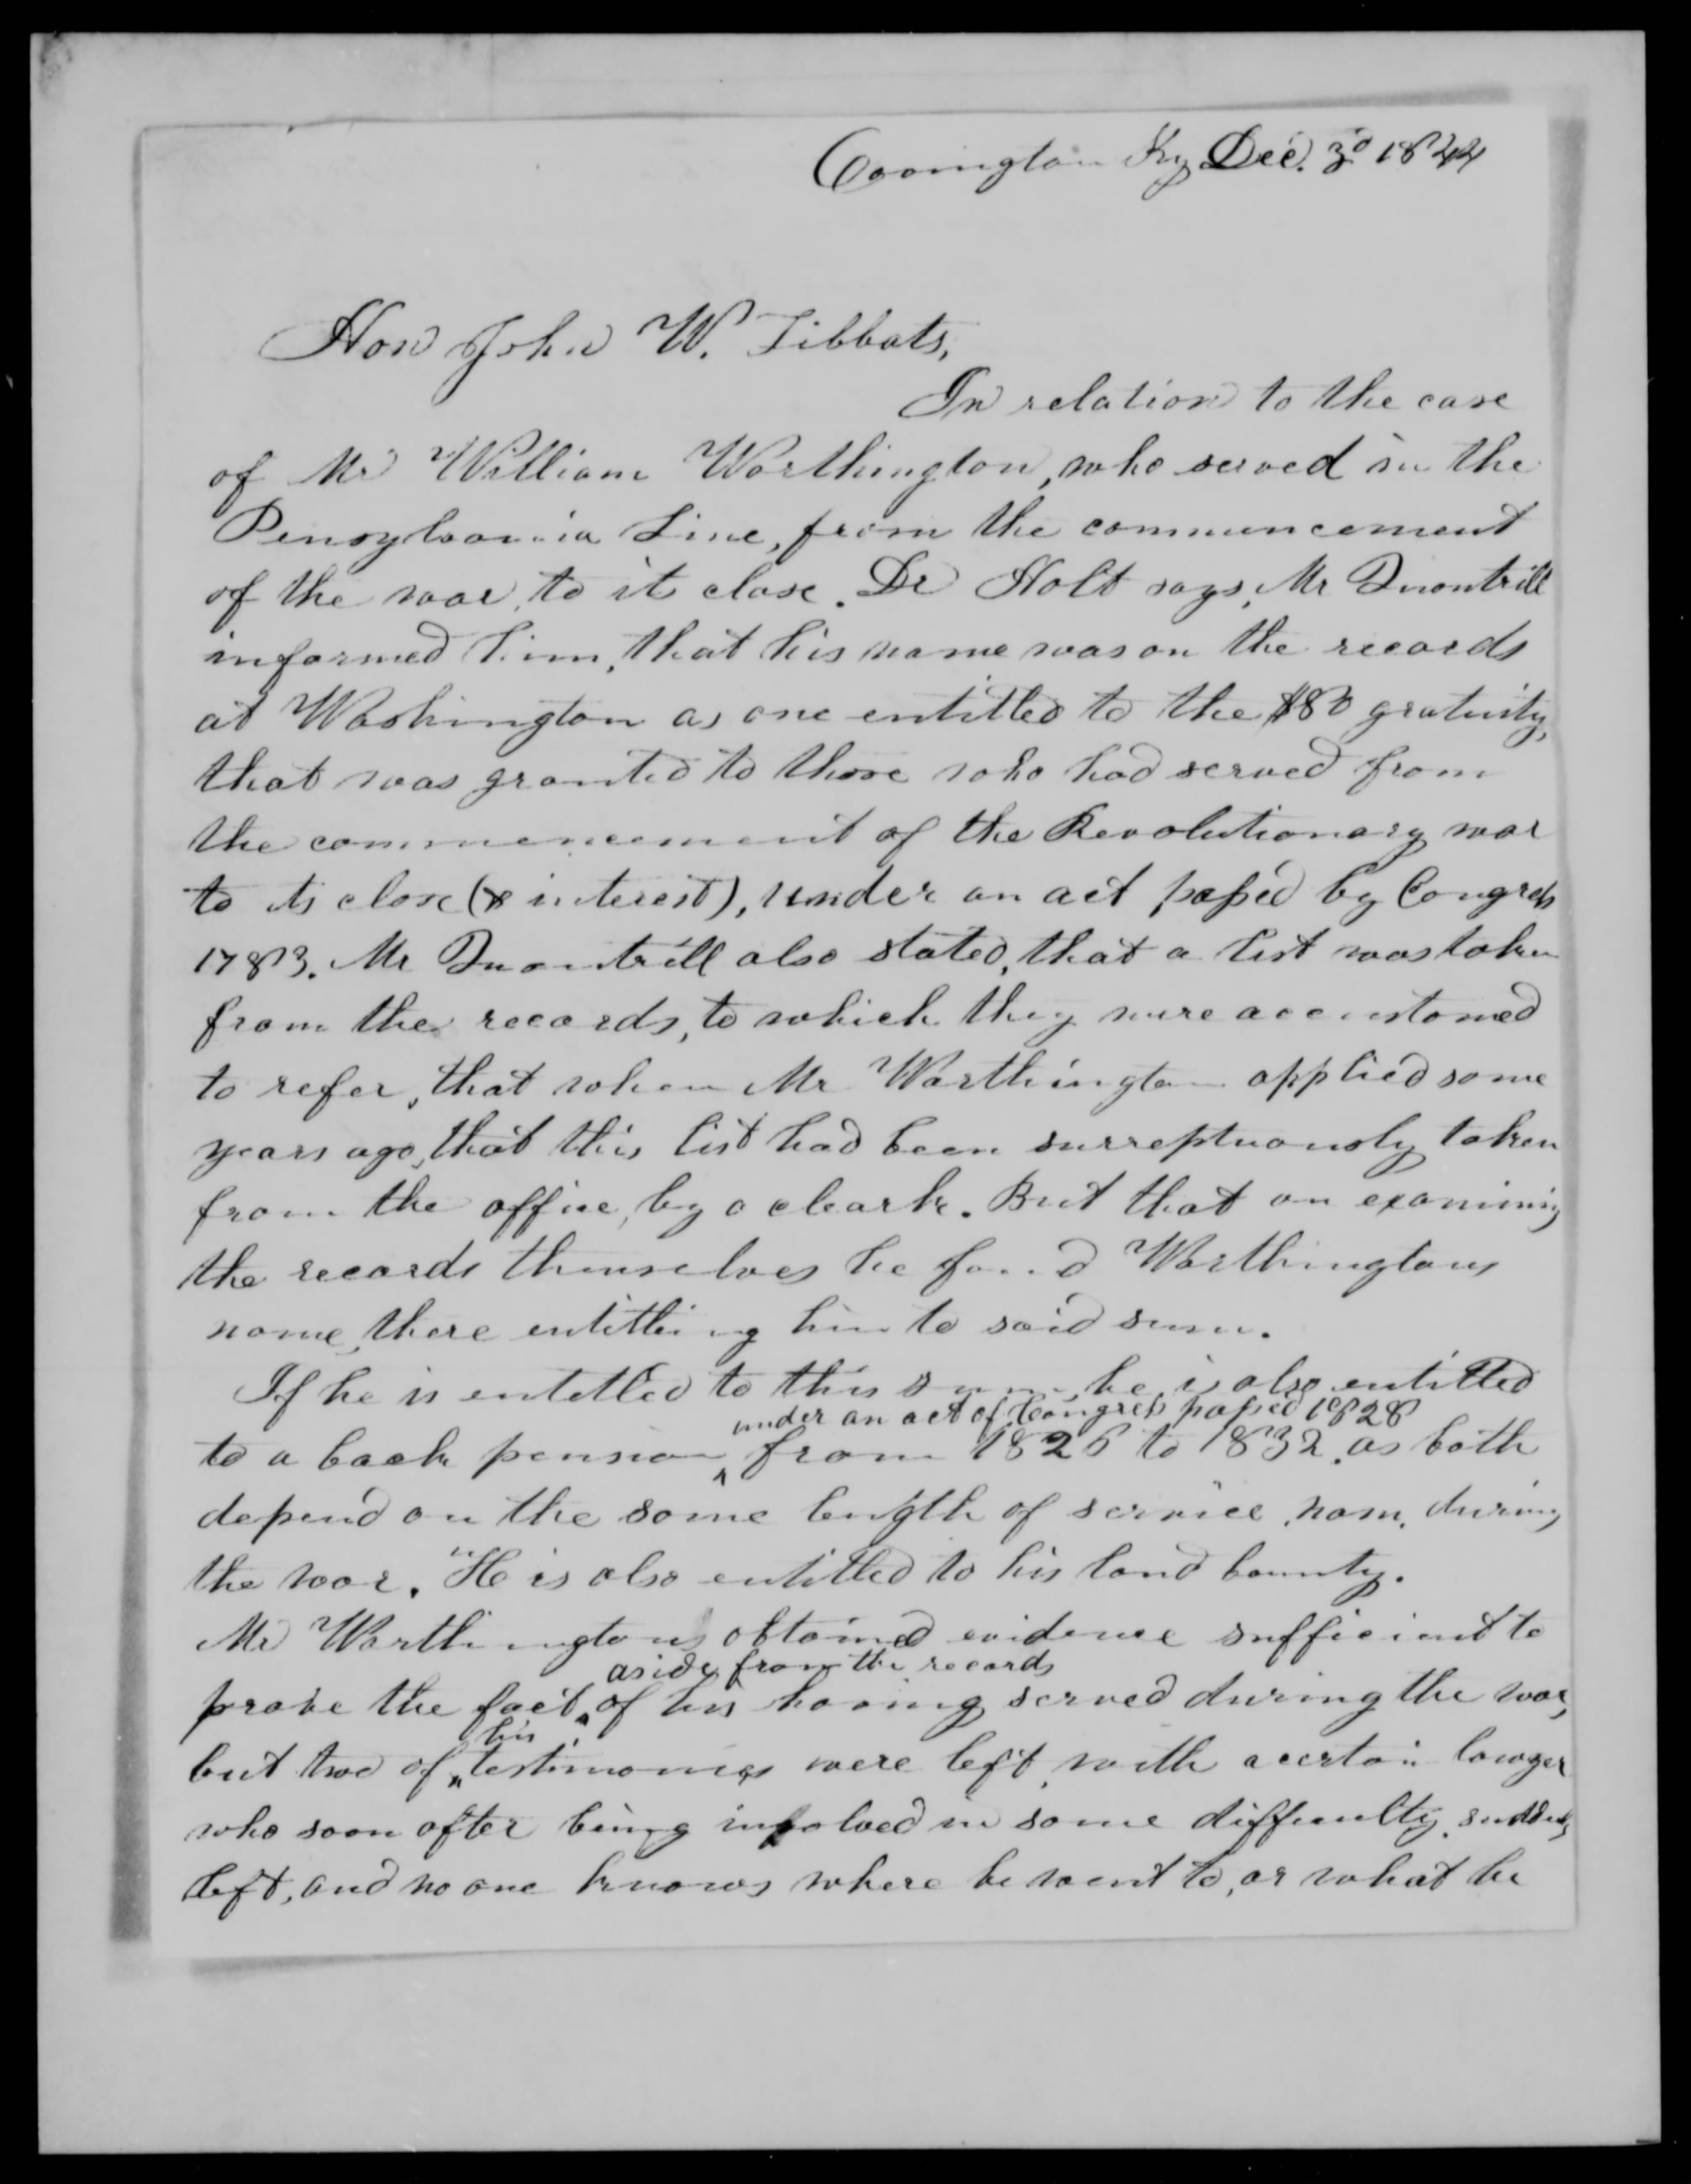 Covington Ky Dec. 3d 1844
Hon John W. Tibbats,
In relation to the case
of Mr William Worthington, who served in the
Pensylvania Line, from the commencement
of the war, to its close. Dr Holt says, Mr Quontrill
informed him, that his name was on the records
at Washington as one entitled to the $80 gratuity,
that was granted to those who had served from
the commencement of the Revolutionary war
to its close (& interest), under an act passed by Congress
1783. Mr Quontrill also stated, that a list was taken
from the records, to which they were accustomed
to refer, that when Mr Worthington applied some
years ago, that this list had been surreptuously taken
from the office, by a clerk. But that on examining
the records themselves he found Worthingtons
name, there entitling him to said sum.
If he is entetled to this sum, he is also entitled
under an act of Congress passed 1828
to a back pension from 1826 to 1832. as both
depend on the same length of service, nam. during
the war. "He is also entitled to his land bounty.
Mr Worthington obtained evidence sufficient to
aside from the records
prove the fact, of his having served during the war,
his
but two of testimonies were left, with a certain lawyer
who soon after being involved in some difficulty, suddenly
left, and no one knows where he went to, or what he